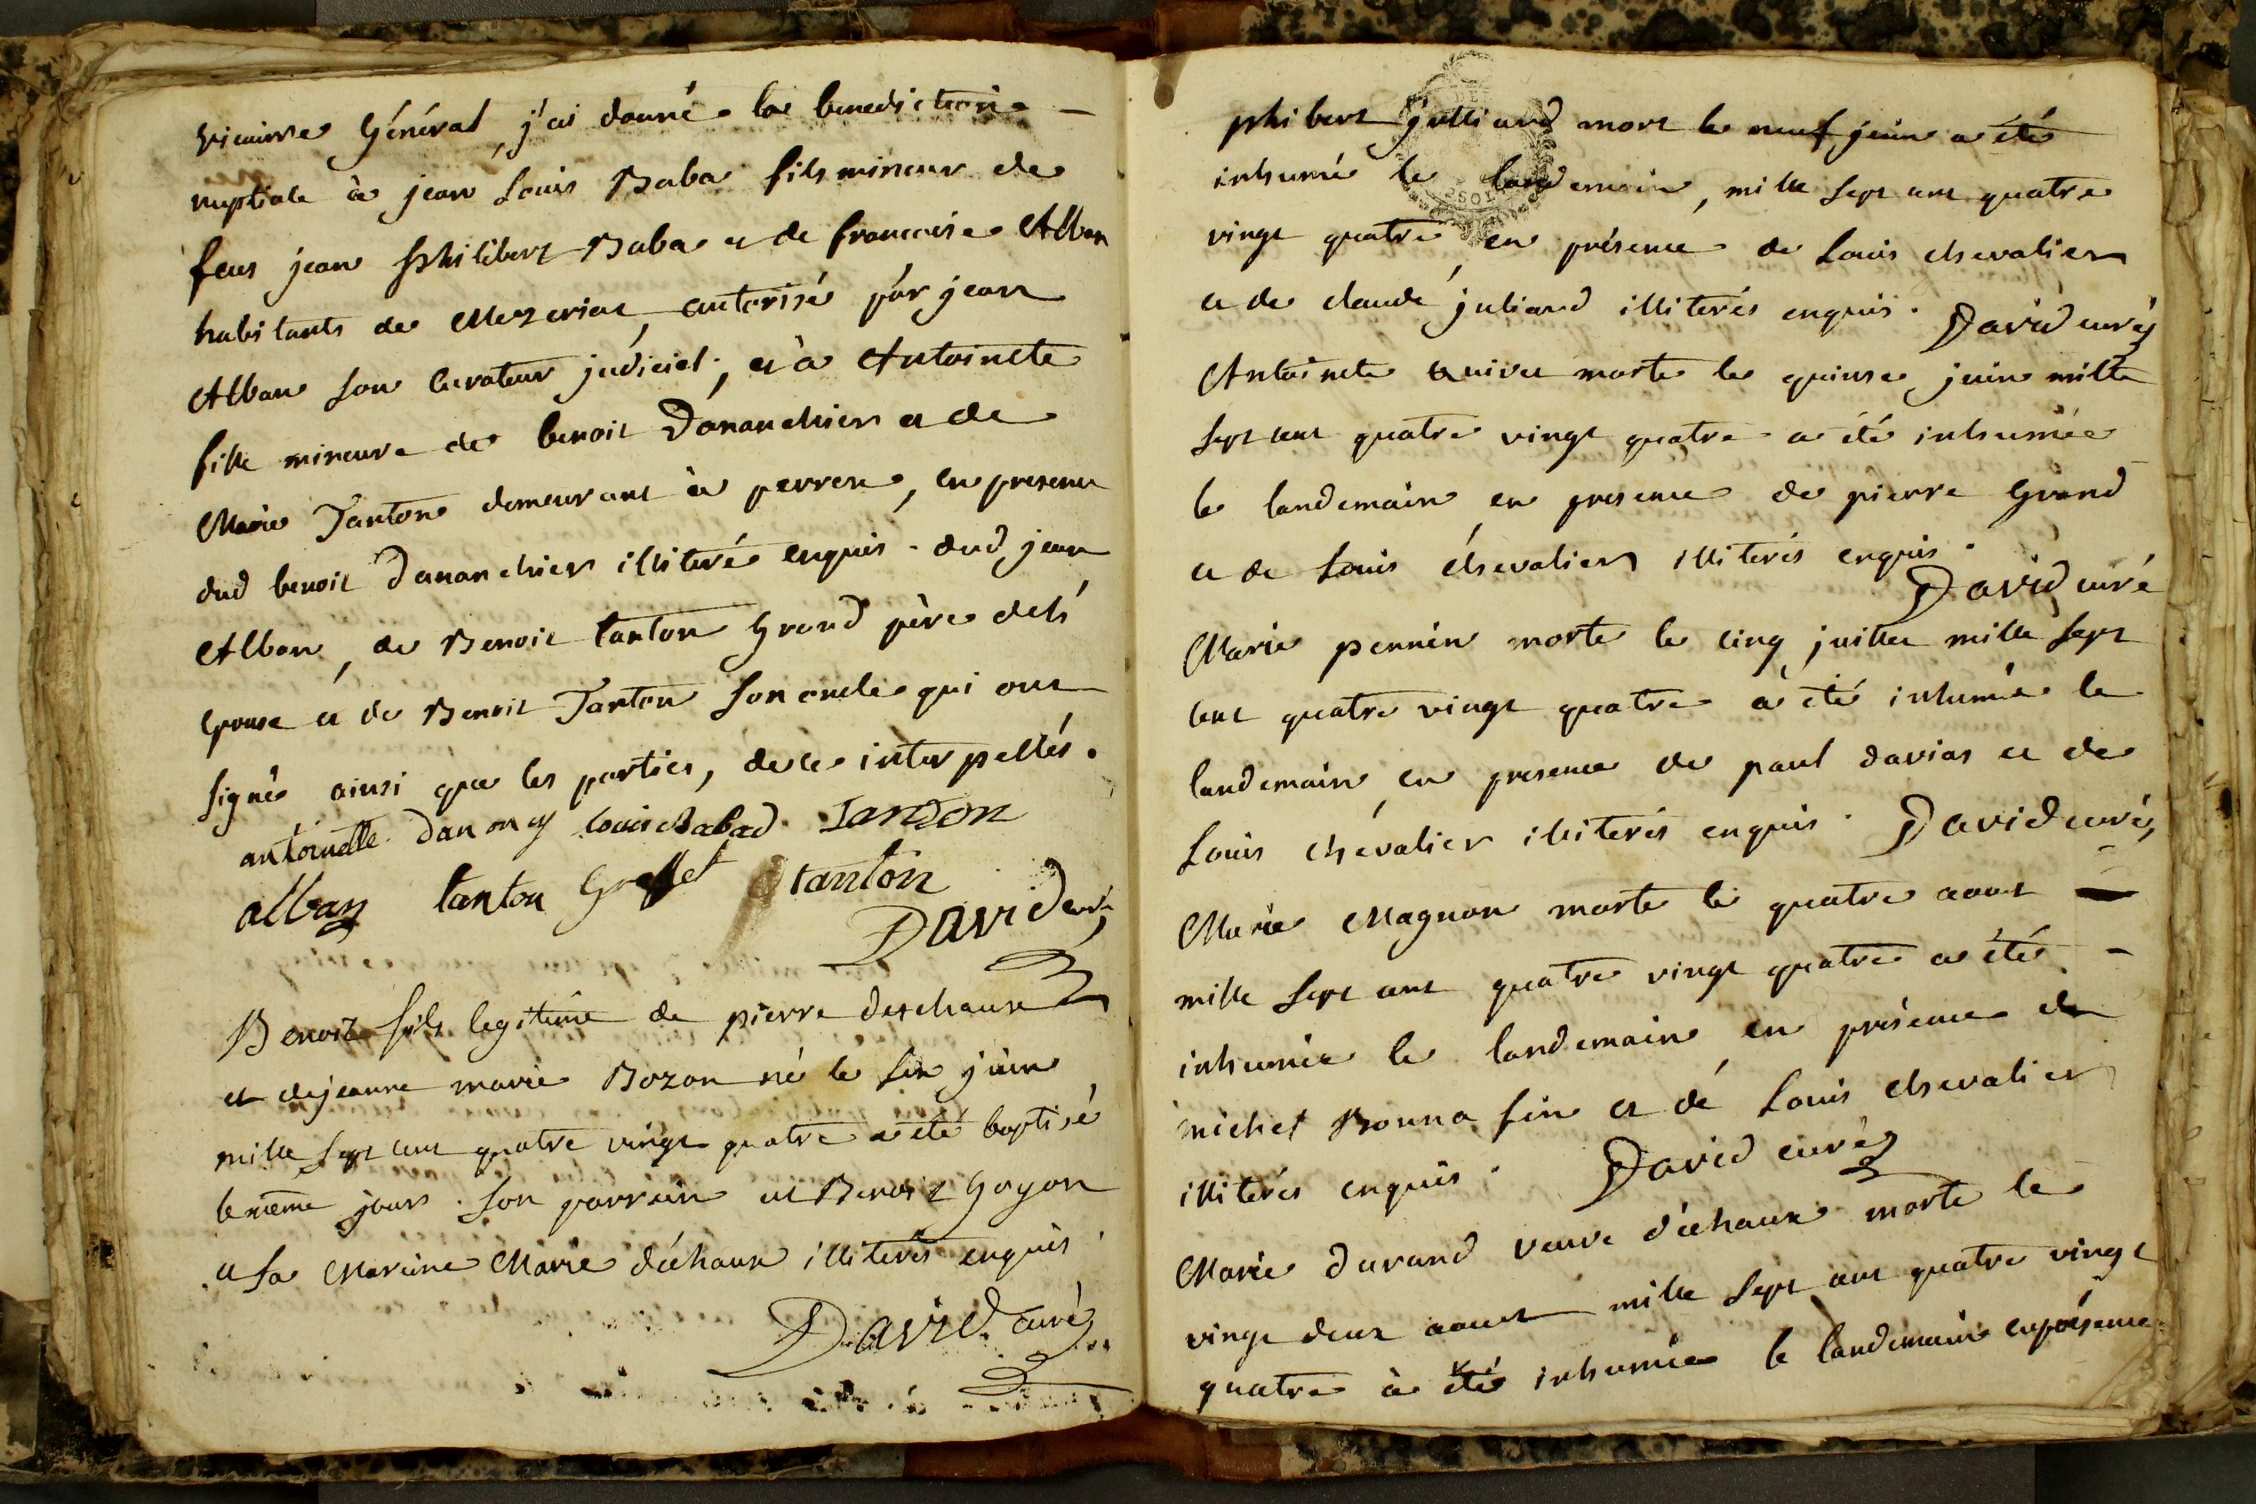 vicairre Général, j'ai donné la benediction
nuptiale à jean Louis Baba fils mineur de
feus jean philibert Baba et de francoise Alban
habitants de Mezeriat, autorisé par jean
Alban son curateur judiciel; et à Antoinete
fille mineure de benoit Dananchier et de
Marie Tanton demeurant à perrex, en presence
dud benoit Dananchier illiteré enquis. dud jean
Alban, de Benoit tanton Grand père de l'
epouse et de Benoit Tanton son oncle qui ont
signé ainsi que les parties, de ce interpellés.
antoinette danon louis Babad Tandon
alban tanton Greffet tanton
David curé
Benoit fils legitime de pierre deschaux
et de jeanne marie Bozon né le six juin
mille sept cent quatre vingt quatre a été baptisé
le même jour. son parrain est Benoit Goyon
et sa Mareine Marie déchaux illiterés enquis.
David curé
phibert julliard mort le neuf juin a été
inhumé le landemain, mille sept cent quatre
vingt quatre, en présence de Louis chevalier
et de claude juliard illiterés enquis. David curé
Antoinete morte le quinze juin mille
sept cent quatre vingt quatre a été inhumée
le landemain en presence de pierre Grand
et de Louis chevalier illiterés enquis.
David curé
Marie perrin morte le cinq juillet mille sept
cent quatre vingt quatre a été inhumée le
landemain, en presence de paul davias et de
Louis chevalier illiterés enquis. David curé
Marie Magnon morte le quatre aoust
mille sept cent quatre vingt quatre a été
inhumée le landemain en présence de
michel Bonna fin et de Louis chevalier
illiterés enquis. David curé
Marie durand veuve déchaux morte le
vingt deux aoust mille sept cent quatre vingt
quatre à été inhumée le landemain en présence